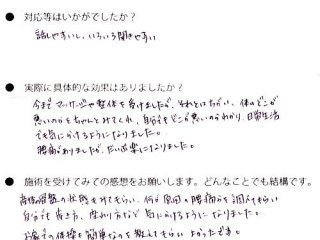 ● 対応等はいかがでしたか？
話しやすいし、いろいろ聞きやすい
● 実際に具体的な効果はありましたか？
今までマッサージや整体を受けましたが、それとはちがい、体のどこが
悪いのかをちゃんとみてくれ、自分でもどこが悪いのかわかり、日常生活
でも気にかけるようになりました。
腰痛がありましたが、だいぶ楽になりました。
● 施術を受けてみての感想をお願いします。どんなことでも結構です。
の状態をみてもらい、何が原因の腰痛かを調べてもらい
自分でも歩き方、座わり方など気にかけるようになりました。
お家での体操も簡単なのを教えてもらいよかったです。